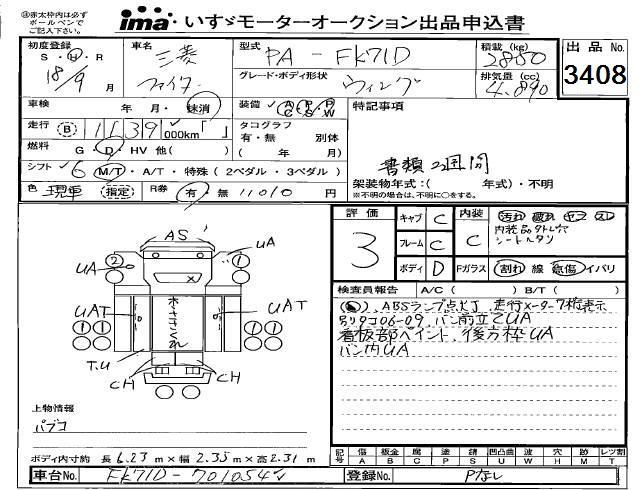 ㊟赤太枠内は必ず
ボールペンで
ご記入下さい。
ima いすゞモーターオークション出品申込書
初度登録 S・H・R 18/9 月
車名 三菱 ファイター
型式 PA-FK71D
積載(kg) 2850
出品No 3408
グレード・ボディ形状 ウィング
排気量(cc) 4.890
車検 年 月・抹消
装備 A/C P/S P/W
特記事項
走行 B 1139 000km「 」
タコグラフ 有・無 別体 ( 年 月)
燃料 G・D・HV 他( )
書類2週間
シフト 6 M/T・A/T・特殊(2ペダル・3ペダル)
架装物年式:( 年式)・不明
※不明の場合は、不明に○をする。
色 現車 指定 R券 有・無 11010 円
評価 3
キャブ C
フレーム C
ボディ D
内装 C
汚れ 破れ ヤブ スレ
Fガラス 割れ 線 飛傷 イバリ
検査員報告 A/C( ) B/T( )
ABSランプ点灯、走行メーター7桁表示
別タコ06-09、バン前立てUA
看板部ペイント、後方枠UA
バン内UA
AS
UA
2
1
UA
UAT
UAT
木ささくれ
T.U
CH
CH
上物情報
パブコ
ボディ内寸約 長 6.23 m×幅 2.35 m×高 2.31 m
記号 傷 A 板金 B 腐 C 塗 P 錆 S 凹凸曲 U 波 W 穴 H 跡 M レツ割 T
車台No. FK71D-701054
登録No. Pなし